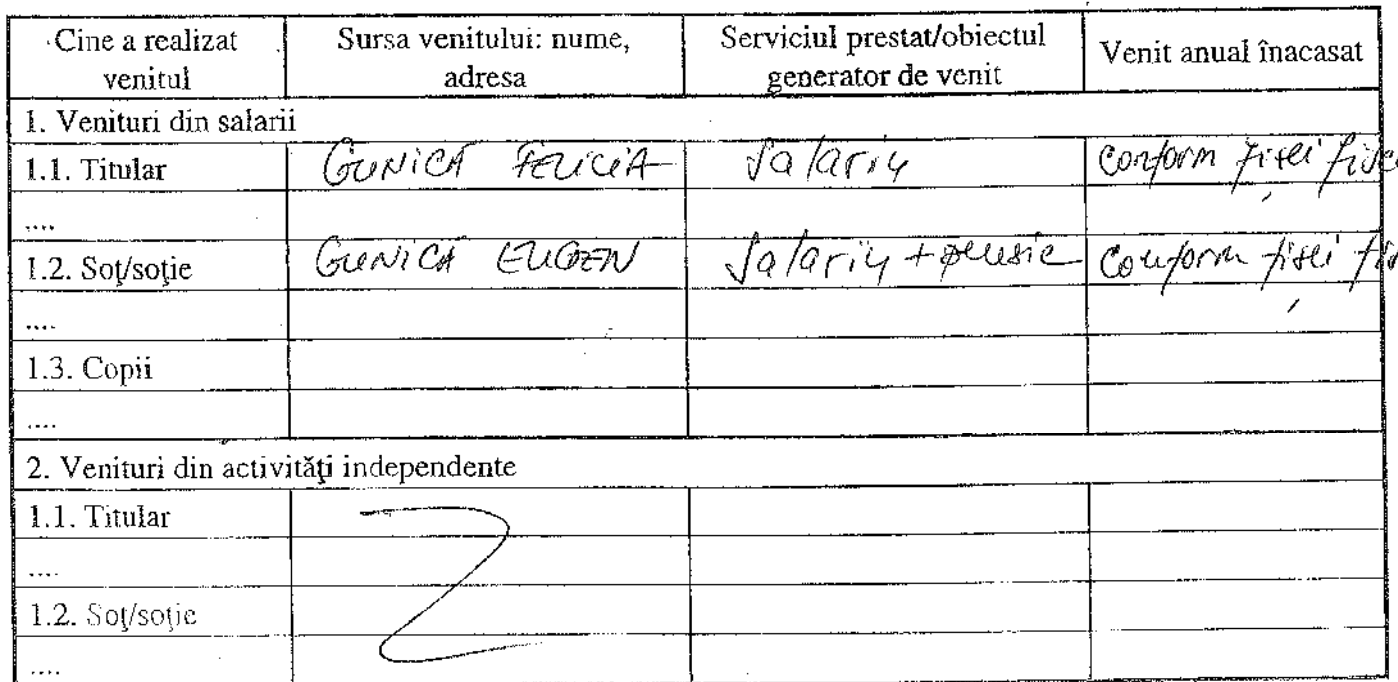 Cine a realizat venitul | Sursa venitului: nume, adresa | Serviciul prestat/obiectul generator de venit | Venit anual înacasat
1. Venituri din salarii
1.1. Titular | GUNICĂ FELICIA | Salariu | Conform fișei
....
1.2. Soţ/soţie | GUNICĂ EUGEN | Salariu + pensie | Conform fișei
....
1.3. Copii
....
2. Venituri din activităţi independente
1.1. Titular
....
1.2. Soţ/soţie
....